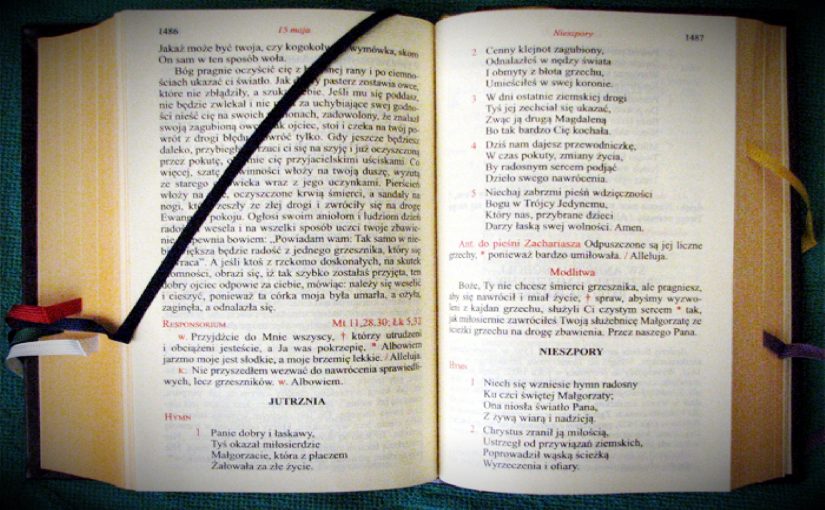 1486
15 maja
Jakaż może być twoja, czy kogokolw wymówka, skoro
On sam w ten sposób woła.
Bóg pragnie oczyścić cię z nej rany i po ciemno-
ściach ukazać ci światło. Jak pasterz zostawia owce,
które nie zbłądziły, a szuka ebie. Jeśli mu się poddasz,
nie będzie zwlekał i nie za uchybiające swej godno-
ści nieść cię na swoich onach, zadowolony, że znalazł
swoją zagubioną ow ojciec, stoi i czeka na twój po-
wrót z drogi błęd wróć tylko. Gdy jeszcze będziesz
daleko, przybieg rzuci ci się na szyję i już oczyszczoną
przez pokutę, o nie cię przyjacielskimi uściskami. Co
więcej, szatę winności włoży na twoją duszę, wyzutą
ze starego wieka wraz z jego uczynkami. Pierścień
włoży na ce, oczyszczone krwią śmierci, a sandały na
nogi, k zeszły ze złej drogi i zwróciły się na drogę
Ewang pokoju. Ogłosi swoim aniołom i ludziom dzień
rado wesela i na wszelki sposób uczci twoje zbawie-
nie pewnia bowiem: „Powiadam wam: Tak samo w nie-
b większa będzie radość z jednego grzesznika, który się
wraca”. A jeśli ktoś z rzekomo doskonałych, na skutek
omności, obrazi się, iż tak szybko zostałaś przyjęta, ten
dobry ojciec odpowie za ciebie, mówiąc: należy się weselić
i cieszyć, ponieważ ta córka moja była umarła, a ożyła,
zaginęła, a odnalazła się.
RESPONSORIUM Mt 11,28.30; Łk 5,32
W. Przyjdźcie do Mnie wszyscy, † którzy utrudzeni
i obciążeni jesteście, a Ja was pokrzepię, * Albowiem
jarzmo moje jest słodkie, a moje brzemię lekkie. / Alleluja.
K. Nie przyszedłem wezwać do nawrócenia sprawiedli-
wych, lecz grzeszników. W. Albowiem.
JUTRZNIA
HYMN
1 Panie dobry i łaskawy,
Tyś okazał miłosierdzie
Małgorzacie, która z płaczem
Żałowała za złe życie.
Nieszpory
1487
2 Cenny klejnot zagubiony,
Odnalazłeś w nędzy świata
I obmyty z błota grzechu,
Umieściłeś w swej koronie.
3 W dni ostatnie ziemskiej drogi
Tyś jej zechciał się ukazać,
Zwąc ją drugą Magdaleną
Bo tak bardzo Cię kochała.
4 Dziś nam dajesz przewodniczkę,
W czas pokuty, zmiany życia,
By radosnym sercem podjąć
Dzieło swego nawrócenia.
5 Niechaj zabrzmi pieśń wdzięczności
Bogu w Trójcy Jedynemu,
Który nas, przybrane dzieci
Darzy łaską swej wolności. Amen.
Ant. do pieśni Zachariasza Odpuszczone są jej liczne
grzechy, * ponieważ bardzo umiłowała. / Alleluja.
Modlitwa
Boże, Ty nie chcesz śmierci grzesznika, ale pragniesz,
aby się nawrócił i miał życie, † spraw, abyśmy wyzwo-
leni z kajdan grzechu, służyli Ci czystym sercem * tak,
jak miłosiernie zawróciłeś Twoją służebnicę Małgorzatę ze
ścieżki grzechu na drogę zbawienia. Przez naszego Pana.
NIESZPORY
HYMN
1 Niech się wzniesie hymn radosny
Ku czci świętej Małgorzaty;
Ona niosła światło Pana,
Z żywą wiarą i nadzieją.
2 Chrystus zranił ją miłością,
Ustrzegł od przywiązań ziemskich,
Poprowadził wąską ścieżką
Wyrzeczenia i ofiary.